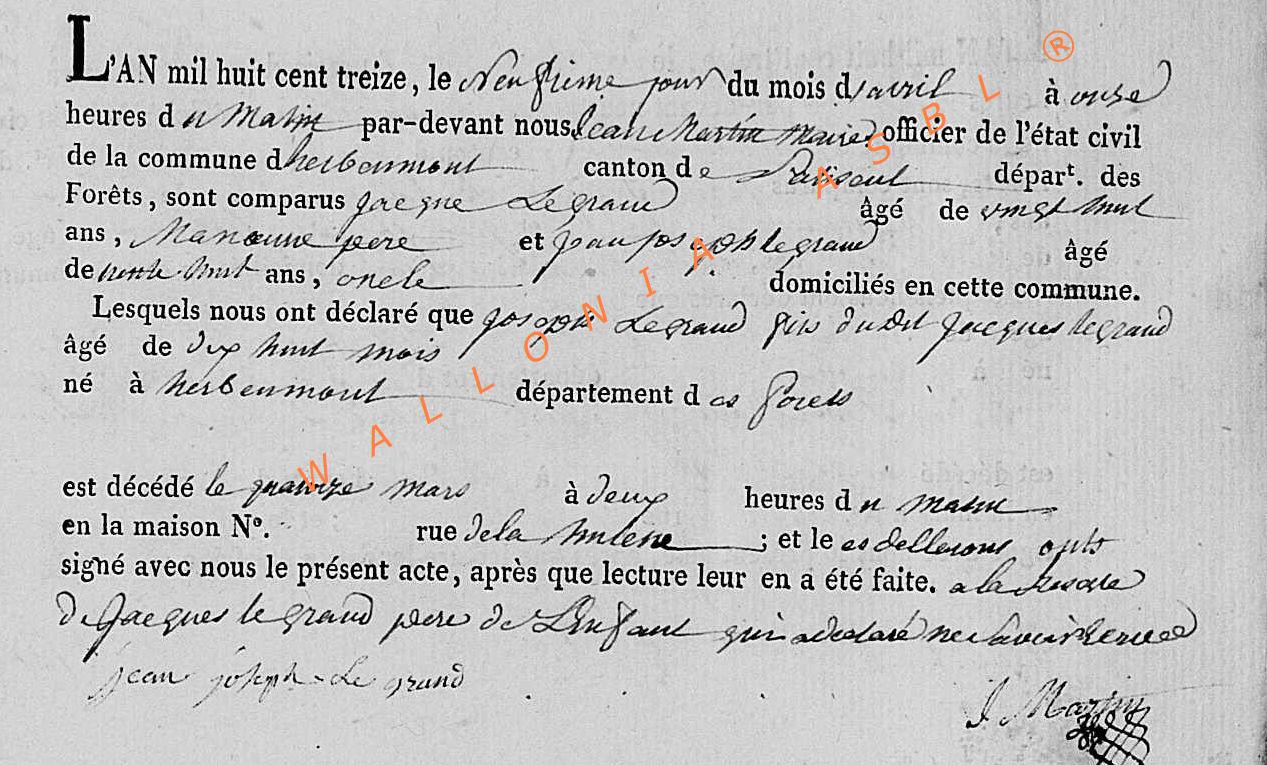 L'AN mil huit cent treize, le neufieme jour du mois d'avril à onze
heures du Matin par-devant nous Jean Martin maire officier de l'état civil
de la commune dherbeumont canton de Paliseul départ. des
Forêts, sont comparus jacque Legrand âgé de vingt huit
ans, Manœuvre pere et jean joseph legrand âgé
de trente-huit ans, oncle domiciliés en cette commune.
Lesquels nous ont déclaré que joseph Legrand fils dudit jacques legrand
âgé de dix huit mois
né à herbeumont département des forets
est décédé le mars à deux heures du matin
en la maison N°. rue de la ; et le
signé avec nous le présent acte, après que lecture leur en a été faite. a la
de jacques legrand pere de L'enfant qui a declaré ne savoir
jean joseph Le grand
J Martin
WALLONIA ASBL ®